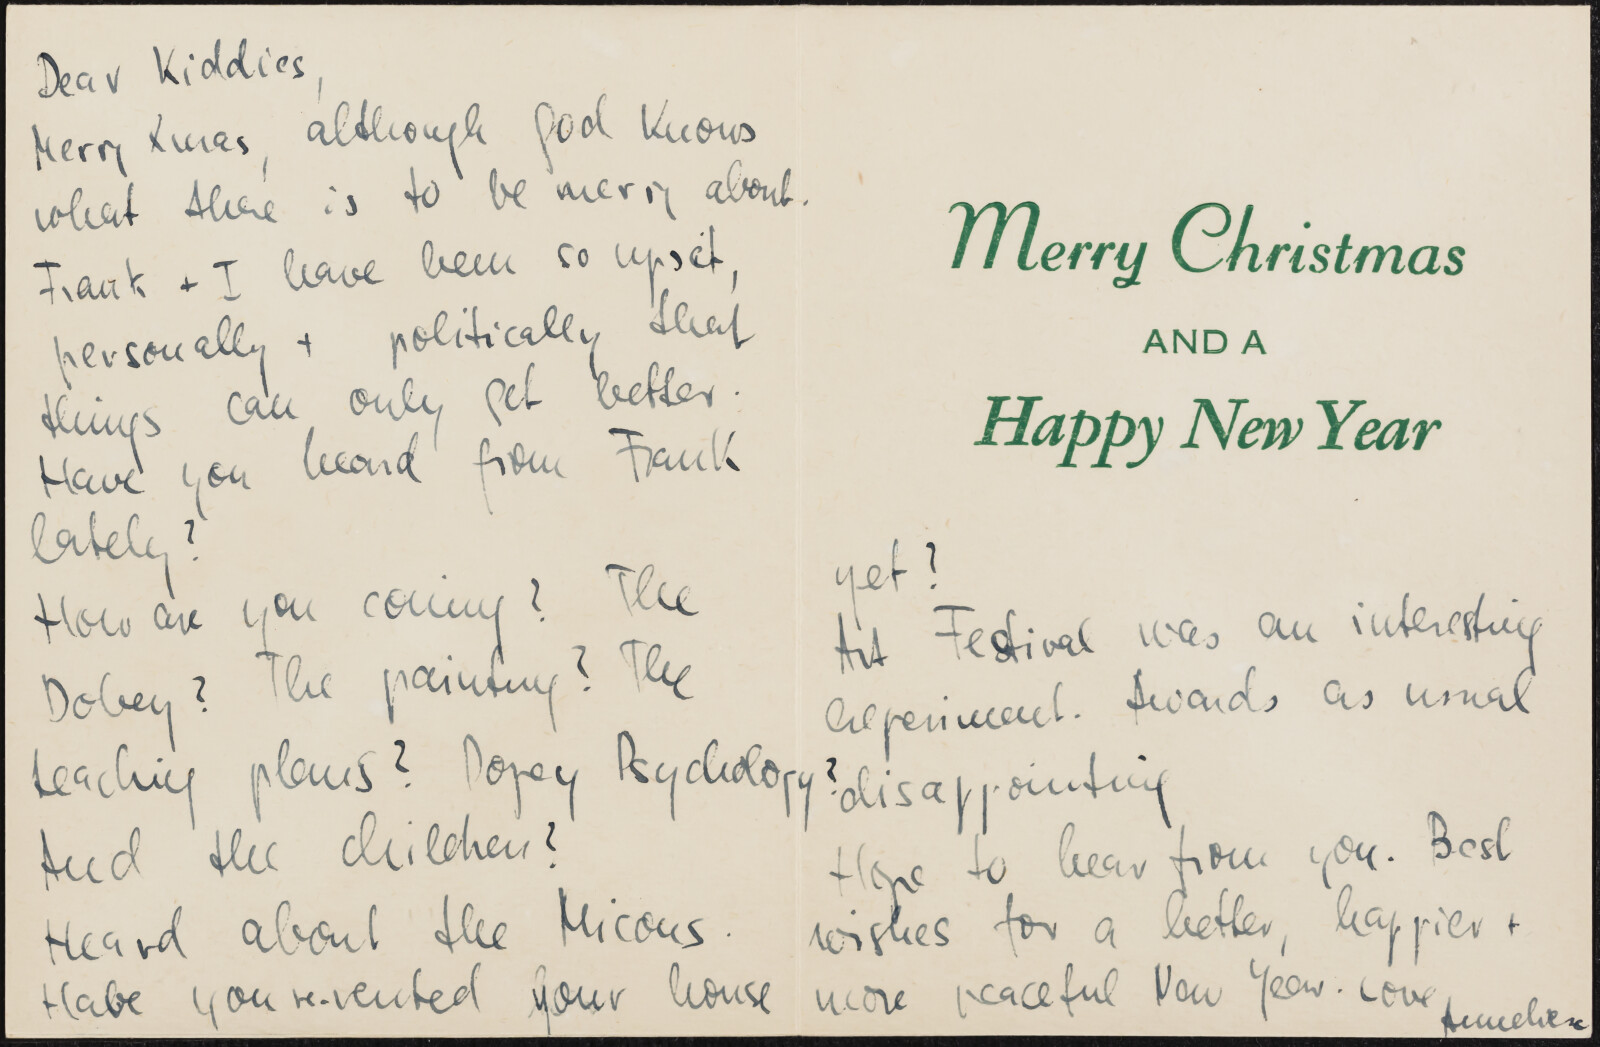 Dear Kiddies,
Merry Xmas, although god knows
what there is to be merry about.
Frank + I have been so upset,
personally + politically that
things can only get better.
Have you heard from Frank
lately?
How are you coming? The
Dobey? The painting? The
teaching plans? Dopey Psychology?
And the children?
Heard about the Micous.
Habe you re-rented your house
Merry Christmas
AND A
Happy New Year
yet?
Art Festival was an interesting
experiment. Awards as usual
disappointing
Hope to hear from you. Best
wishes for a better, happier +
more peaceful New Year. Love,
Anneliese